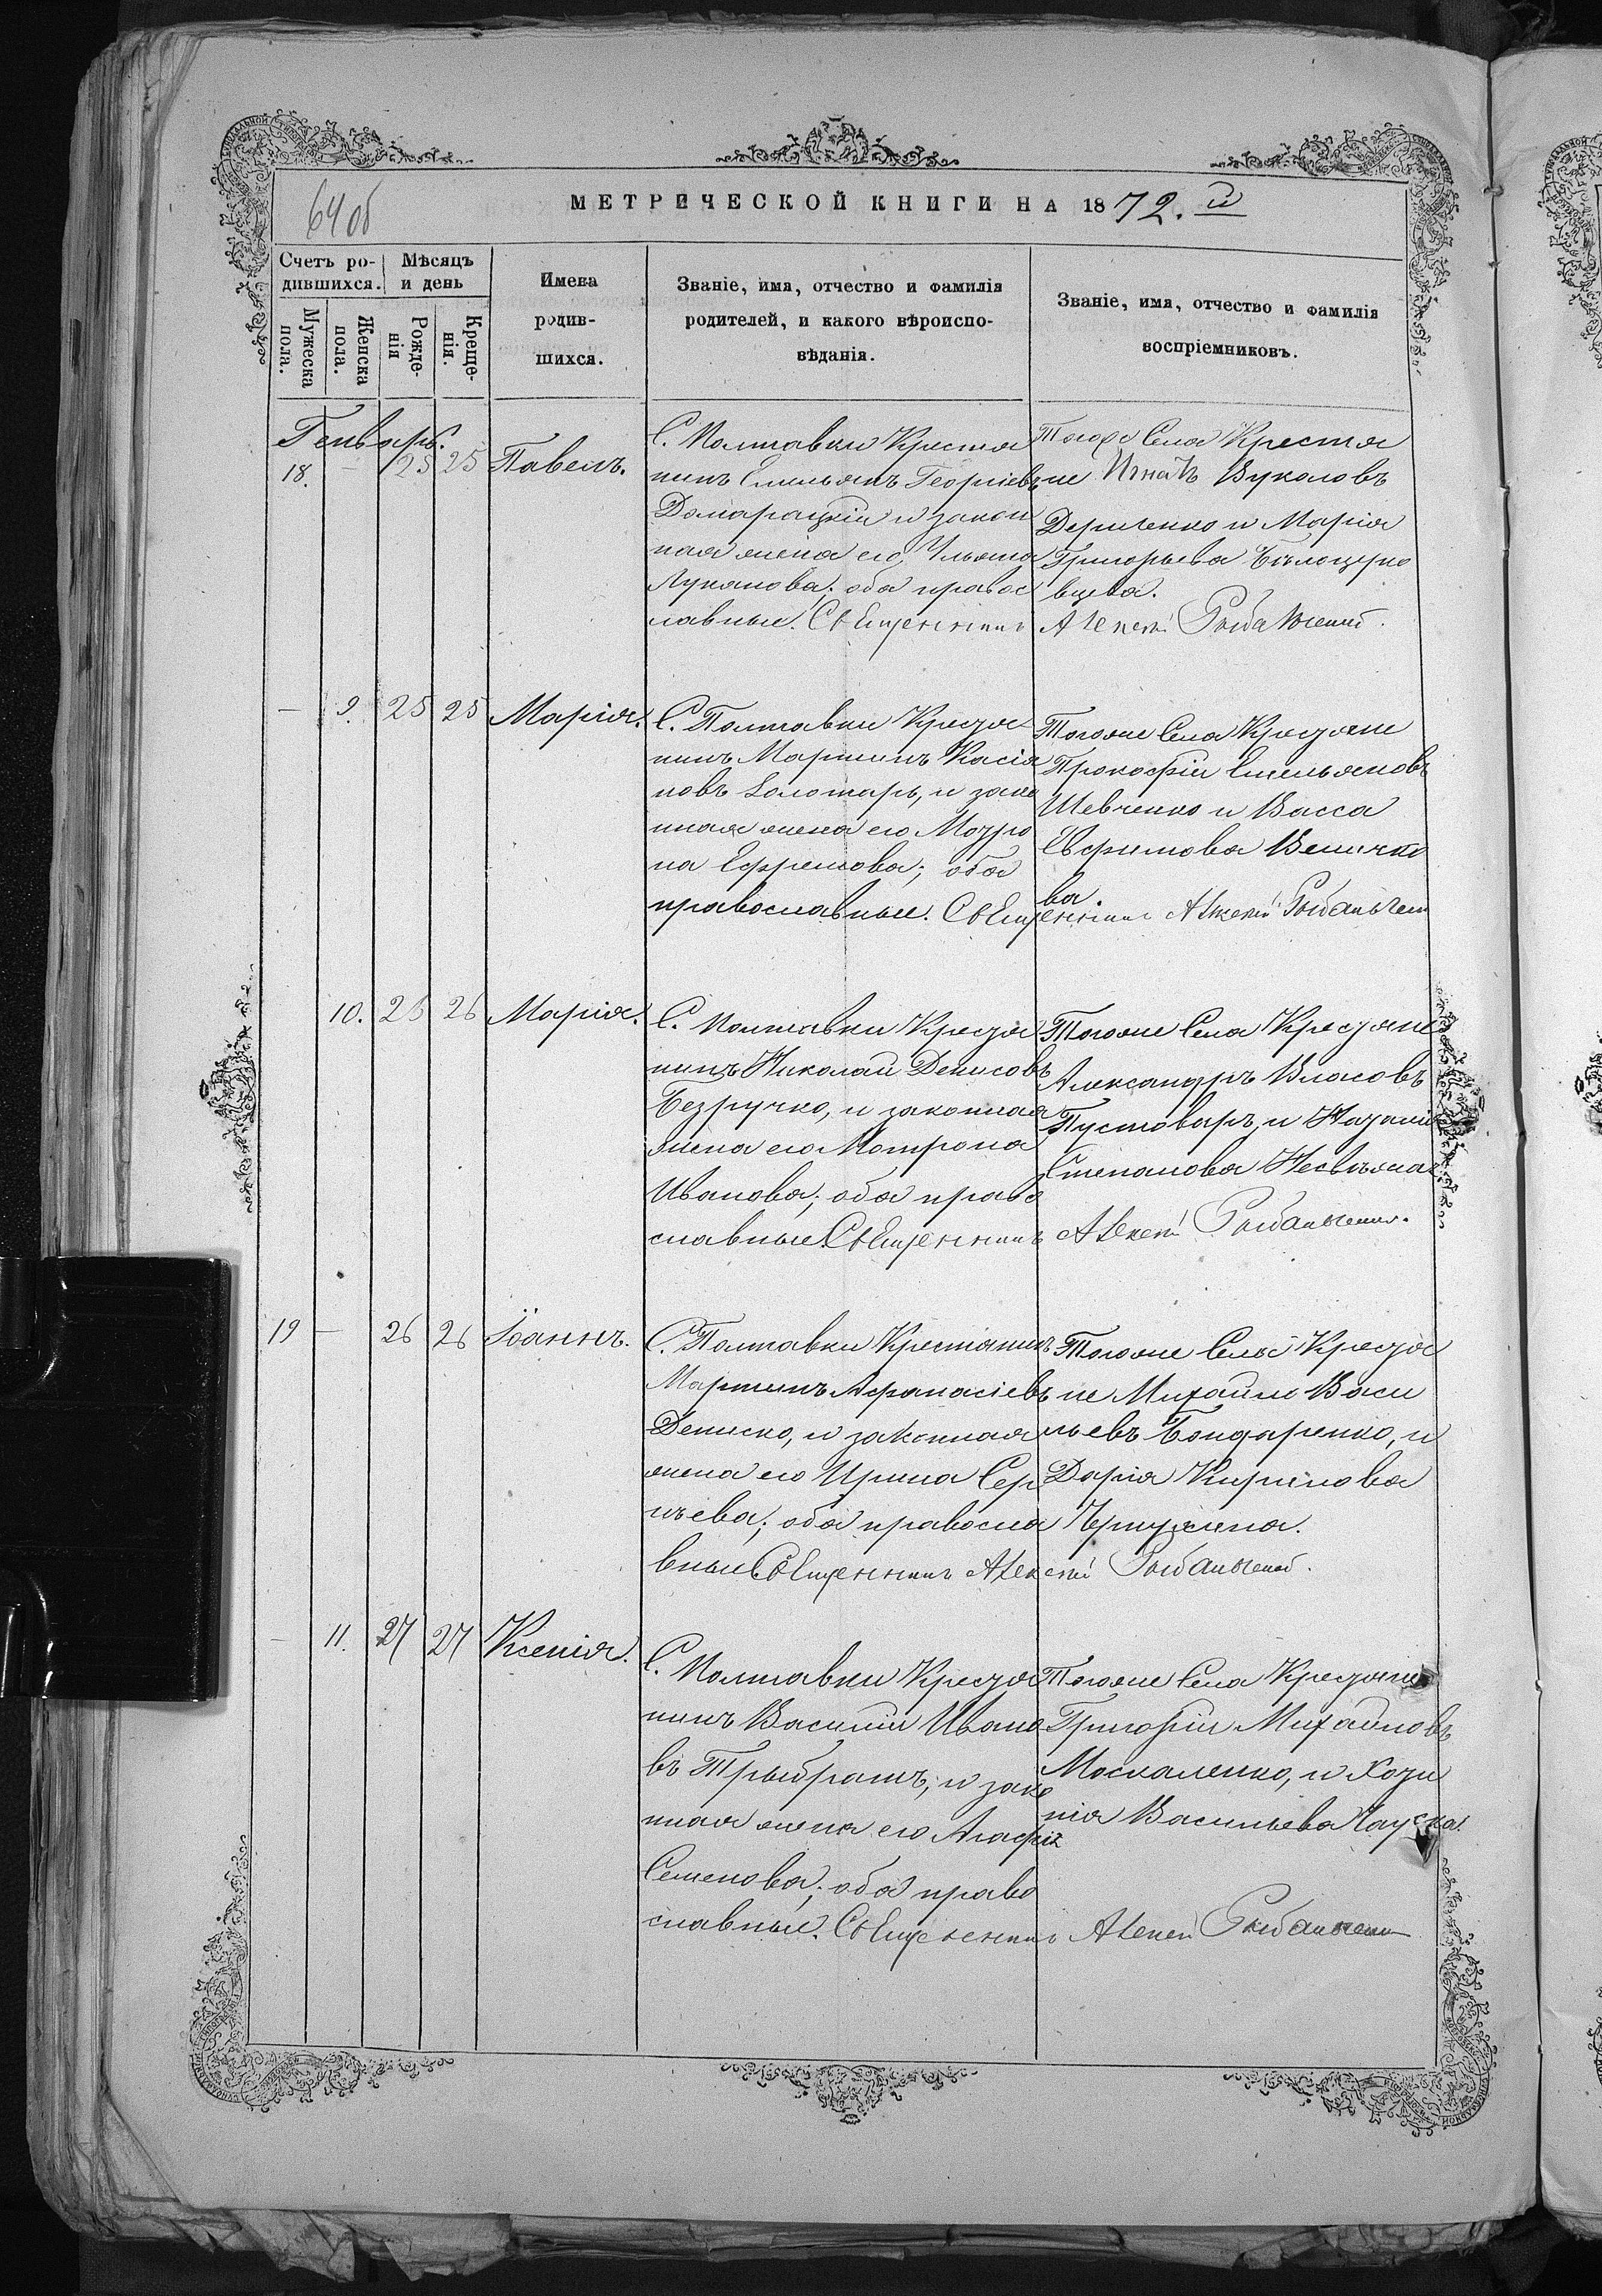 64 об
МЕТРИЧЕСКОЙ КНИГИ НА 1872. й
Счетъ ро-
дившихся.
Мѣсяцъ
и день
Мужеска
пола.
Женска
пола.
Рожде-
нія
Креще-
нія.
Имена
родив-
шихся.
Званіе, имя, отчество и фамилія
родителей, и какого вѣроиспо-
вѣданія.
Званіе, имя, отчество и фамилія
воспріемниковъ.
Генварь.
18. – 25 25 Павелъ.
С. Полтавки Крестья
нинъ Емельянъ Георгіевъ
Домарацкій и закон
ная жена его Ульяна
Лукянова; оба правос
лавные. Священникъ
Тогоже Села Крестья
не Игнатъ Вуколовъ
и Марія
Григорьева Бѣлоцерко
вцева.
Алексѣй Рыбальченко.
– 9. 25 25 Марія.
С. Полтавки Крестья
нинъ Мартинъ Касія
новъ Золотарь, и зако
нная жена его Мотро
на Ефремова; оба
православные. Священникъ Алексѣй Рыбальчен
Тогоже Села Крестьяне
Прокофій Емельяновъ
Шевченко и Васса
Евфимова Величко
ва.
10. 26 26 Марія.
С. Полтавки Крестья
нинъ Николай Денисовъ
Безручко, и законная
жена его Мотрона
Иванова; оба право
славные. Священникъ
Тогоже Села Крестьяне
Александръ Власовъ
Пустоваръ, и Наталія
Степанова
Алексѣй Рыбальченко.
19 – 26 26 Іоаннъ.
С. Полтавки Крестіянинъ
Мартинъ Афанасіевъ
Дениско, и законная
жена его Ирина Сер
гѣева; оба правосла
вные Священникъ Алексѣй Рыбальченко.
Тогоже Села Крестья
не Михаилъ Васи
льевъ Бондаренко, и
Дарія Кирилова
– 11. 27 27 Ксенія.
С. Полтавки Крестья
нинъ Василій Ивано
въ Трыбратъ, и зако
нная жена его Агафія
Семенова; оба право
славные. Священникъ
Тогоже Села Крестьяне
Григорій Михайловъ
Москаленко, и
нія Васильева
Алексѣй Рыбальченко